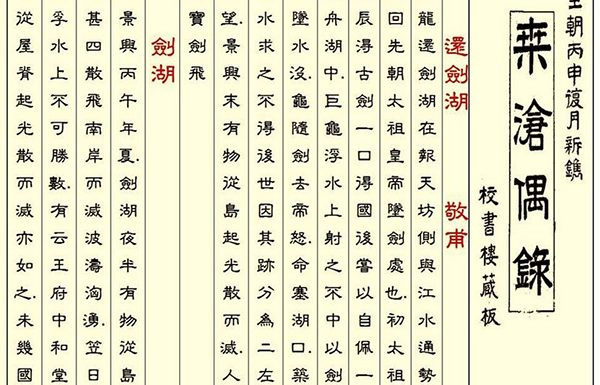 朝丙申復月新鐫
桒滄偶錄
校書樓藏板
還劍湖 敬甫
龍還劍湖在報天坊側與江水通勢
回先朝太祖皇帝墜劍處也.初太祖
辰得古劍一口得國後嘗以自佩一
舟湖中.巨龜浮水上射之不中以劍
墜水沒.龜隨劍去帝怒.命塞湖口.築
水求之不得後世因其跡分為二左
望.景興末有物從島起光散而滅.人
寶劍飛
劍湖
景興丙午年夏.劍湖夜半有物從島
甚四散飛南岸而滅波濤洶湧.笠日
孚水上不可勝數.有云王府中和堂
從屋脊起光散而滅亦如之.未幾國